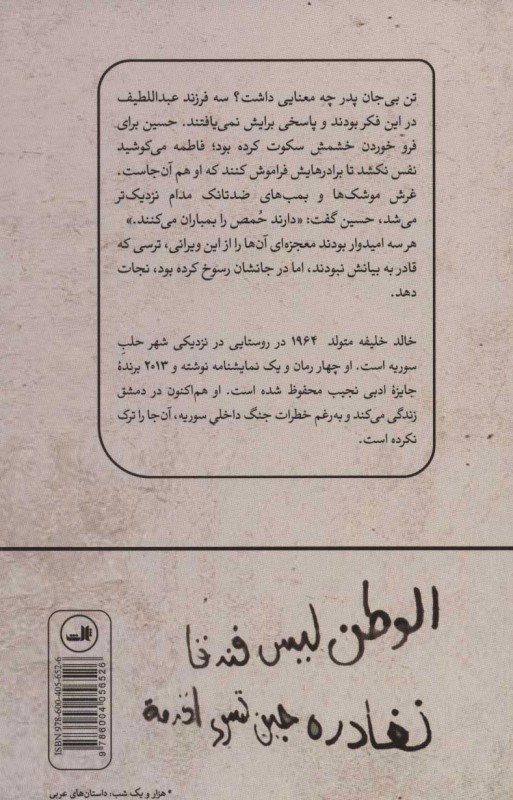 تن بی‌جان پدر چه معنایی داشت؟ سه فرزند عبداللطیف
در این فکر بودند و پاسخی برایش نمی‌یافتند. حسین برای
فرو خوردن خشمش سکوت کرده بود؛ فاطمه می‌کوشید
نفس نکشد تا برادرهایش فراموش کنند که او هم آن‌جاست.
غرش موشک‌ها و بمب‌های ضدتانک مدام نزدیک‌تر
می‌شد، حسین گفت: «دارند حُمص را بمباران می‌کنند.»
هر سه امیدوار بودند معجزه‌ای آن‌ها را از این ویرانی، ترسی که
قادر به بیانش نبودند، اما در جانشان رسوخ کرده بود، نجات
دهد.
خالد خلیفه متولد ۱۹۶۴ در روستایی در نزدیکی شهر حلبِ
سوریه است. او چهار رمان و یک نمایشنامه نوشته و ۲۰۱۳ برندهٔ
جایزهٔ ادبی نجیب محفوظ شده است. او هم‌اکنون در دمشق
زندگی می‌کند و به‌رغم خطرات جنگ داخلیِ سوریه، آن‌جا را ترک
نکرده است.
الوطن ليس فندقا
نغادره حين تسوء
ثالث
ISBN 978-600-405-652-6
9 786004 056526
* هزار و یک شب: داستان‌های عربی